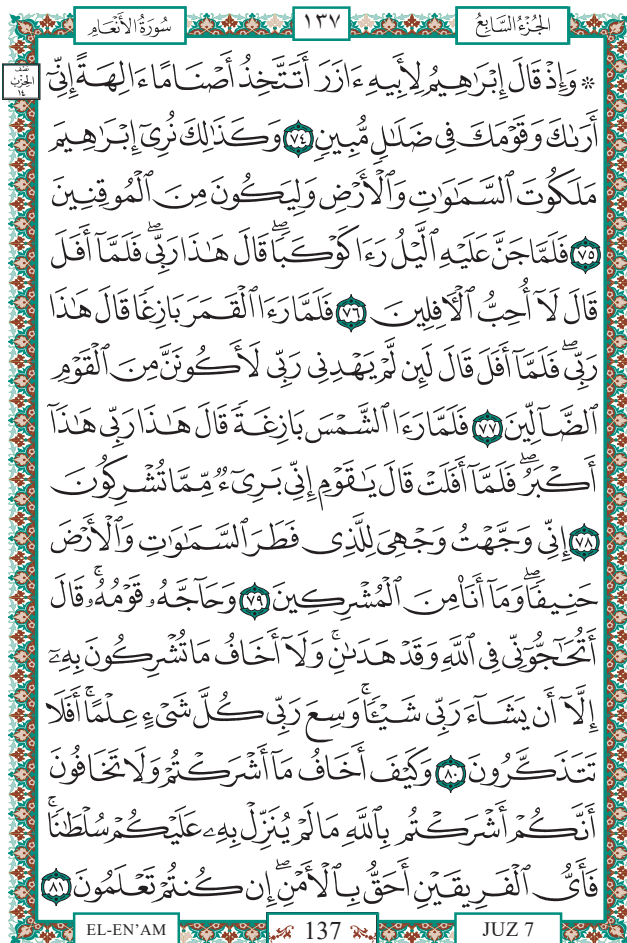 سُورَةُ الأَنْعَام ١٣٧ الجُزْءُ السَّابِعُ
نصف
الحزب
١٤
۞ وَإِذْ قَالَ إِبْرَٰهِيمُ لِأَبِيهِ ءَازَرَ أَتَتَّخِذُ أَصْنَامًا ءَالِهَةً إِنِّىٓ
أَرَىٰكَ وَقَوْمَكَ فِى ضَلَٰلٍ مُّبِينٍ ٧٤ وَكَذَٰلِكَ نُرِىٓ إِبْرَٰهِيمَ
مَلَكُوتَ ٱلسَّمَٰوَٰتِ وَٱلْأَرْضِ وَلِيَكُونَ مِنَ ٱلْمُوقِنِينَ
٧٥ فَلَمَّا جَنَّ عَلَيْهِ ٱلَّيْلُ رَءَا كَوْكَبًاۖ قَالَ هَٰذَا رَبِّىۖ فَلَمَّآ أَفَلَ
قَالَ لَآ أُحِبُّ ٱلْءَافِلِينَ ٧٦ فَلَمَّا رَءَا ٱلْقَمَرَ بَازِغًا قَالَ هَٰذَا
رَبِّىۖ فَلَمَّآ أَفَلَ قَالَ لَئِن لَّمْ يَهْدِنِى رَبِّى لَأَكُونَنَّ مِنَ ٱلْقَوْمِ
ٱلضَّآلِّينَ ٧٧ فَلَمَّا رَءَا ٱلشَّمْسَ بَازِغَةً قَالَ هَٰذَا رَبِّى هَٰذَآ
أَكْبَرُۖ فَلَمَّآ أَفَلَتْ قَالَ يَٰقَوْمِ إِنِّى بَرِىٓءٌ مِّمَّا تُشْرِكُونَ
٧٨ إِنِّى وَجَّهْتُ وَجْهِىَ لِلَّذِى فَطَرَ ٱلسَّمَٰوَٰتِ وَٱلْأَرْضَ
حَنِيفًاۖ وَمَآ أَنَا۠ مِنَ ٱلْمُشْرِكِينَ ٧٩ وَحَآجَّهُۥ قَوْمُهُۥۚ قَالَ
أَتُحَٰٓجُّوٓنِّى فِى ٱللَّهِ وَقَدْ هَدَىٰنِۚ وَلَآ أَخَافُ مَا تُشْرِكُونَ بِهِۦٓ
إِلَّآ أَن يَشَآءَ رَبِّى شَيْـًٔاۗ وَسِعَ رَبِّى كُلَّ شَىْءٍ عِلْمًاۗ أَفَلَا
تَتَذَكَّرُونَ ٨٠ وَكَيْفَ أَخَافُ مَآ أَشْرَكْتُمْ وَلَا تَخَافُونَ
أَنَّكُمْ أَشْرَكْتُم بِٱللَّهِ مَا لَمْ يُنَزِّلْ بِهِۦ عَلَيْكُمْ سُلْطَٰنًاۚ
فَأَىُّ ٱلْفَرِيقَيْنِ أَحَقُّ بِٱلْأَمْنِۖ إِن كُنتُمْ تَعْلَمُونَ ٨١
EL-EN’AM 137 JUZ 7